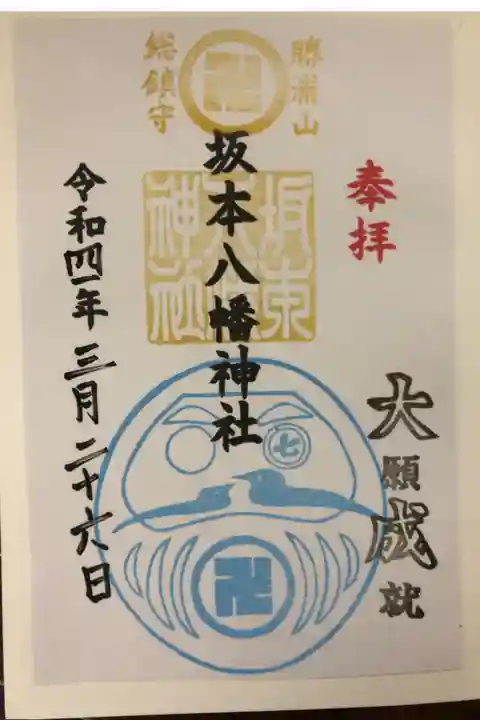 奉拝
大願成就
勝浦山
総鎮守
坂本八幡神社
神社
七
令和四年三月二十六日